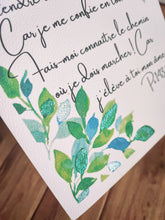 Car je me confie en to
Fais-moi connaître le chemin
où je dois marcher! Car
j'élève à toi mon âme.